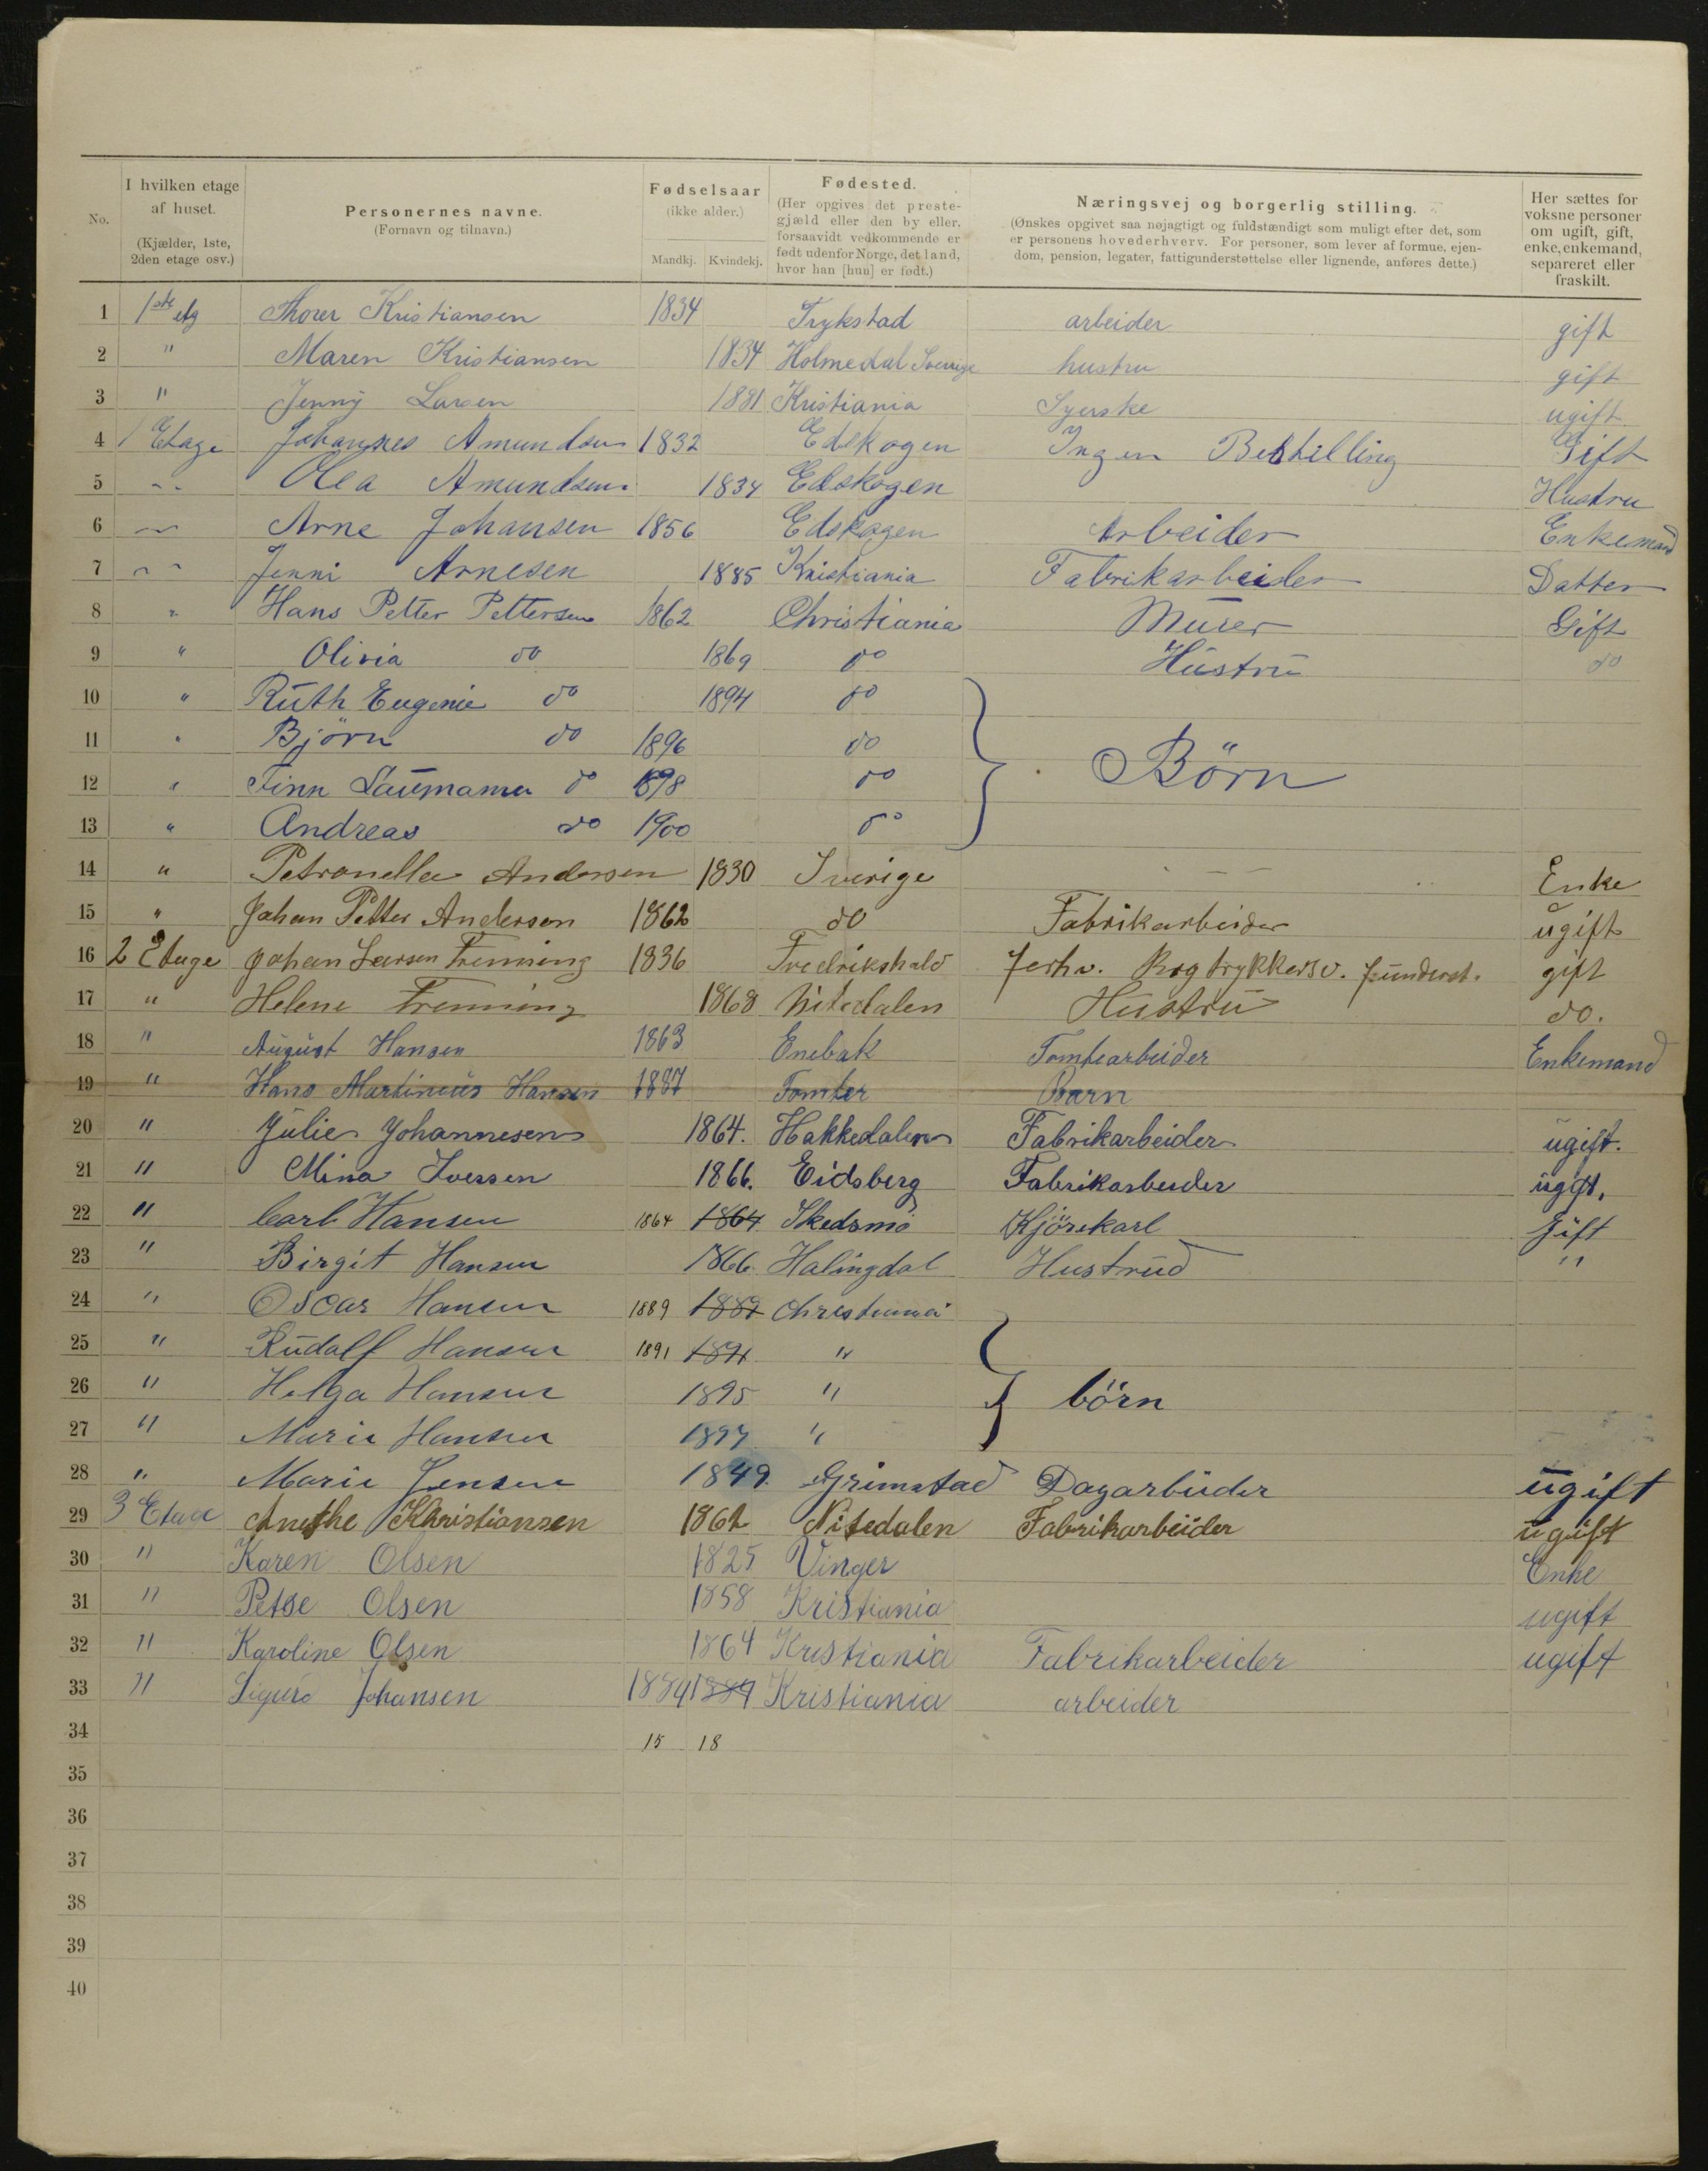 No.
I hvilken etage af huset. (Kjælder, 1ste, 2den etage osv.)
Personernes navne. (Fornavn og tilnavn.)
Fødselsaar (ikke alder.) Mandkj. Kvindekj.
Fødested. (Her opgives det prestegjæld eller den by eller, forsaavidt vedkommende er født udenfor Norge, det land, hvor han [hun] er født.)
Næringsvej og borgerlig stilling. (Ønskes opgivet saa nøjagtigt og fuldstændigt som muligt efter det, som er personens hovederhverv. For personer, som lever af formue, ejendom, pension, legater, fattigunderstøttelse eller lignende, anføres dette.)
Her sættes for voksne personer om ugift, gift, enke, enkemand, separeret eller fraskilt.
1 1ste etg Thorer Kristiansen 1834 Trykstad arbeider gift
2 " Maren Kristiansen 1834 Holmedal Sverrige hustru gift
3 " Jenny Larsen 1881 Kristiania Syerske ugift
4 1 Etage Johannes Amundsen 1832 Edskogen Ingen Bestilling Gift
5 " Olea Amundsen 1834 Edskogen Hustru
6 " Arne Johansen 1856 Edskogen Arbeider Enkemand
7 " Jenni Arnesen 1885 Kristiania Fabrikarbeider Datter
8 " Hans Petter Pettersen 1862 Christiania Murer Gift
9 " Olivia do 1869 do Hustru do
10 " Ruth Eugenie do 1894 do
11 " Björn do 1896 do Börn
12 " Finn do 1898 do
13 " Andreas do 1900 do
14 " Petronella Andersen 1830 Sverige Enke
15 " Johan Petter Andersen 1862 do Fabrikarbeider ugift
16 2 Etage Johan Larsen Frenning 1836 Fredrikshald forhv. Bogtrykkersv. gift
17 " Helene Frenning 1868 Nitedalen Hustru do.
18 " August Hansen 1863 Enebak Tomtearbeider Enkemand
19 " Hans Martinius Hansen 1887 Tomter Barn
20 " Julie Johannesen 1864. Hakkedalen Fabrikarbeider ugift.
21 " Mina Iversen 1866. Eidsberg Fabrikarbeider ugift.
22 " Carl Hansen 1864 1864 Skedsmo Kjörekarl Gift
23 " Birgit Hansen 1866 Halingdal Hustrud "
24 " Oscar Hansen 1889 1889 Christiania
25 " Rudolf Hansen 1891 1891 "
26 " Helga Hansen 1895 " börn
27 " Marie Hansen 1897 "
28 " Marie Jensen 1849. Grimstad Dagarbeider ugift
29 3 Etage Anethe Khristiansen 1862 Nitedalen Fabrikarbeider ugift
30 " Karen Olsen 1825 Vinger Enke
31 " Olsen 1858 Kristiania ugift
32 " Karoline Olsen 1864 Kristiania Fabrikarbeider ugift
33 " Sigurd Johansen 1884 1884 Kristiania arbeider
34 15 18
35
36
37
38
39
40